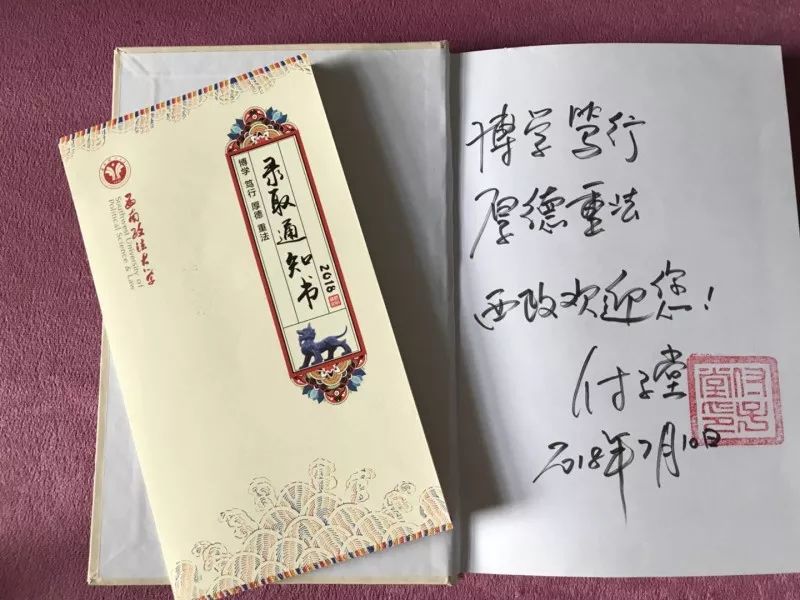 西南政法大学
Southwest University of
Political Science & Law
录取通知书
2018
博学 笃行 厚德 重法
博学笃行
厚德重法
西政欢迎您！
付子堂
2018年7月10日
付子堂印